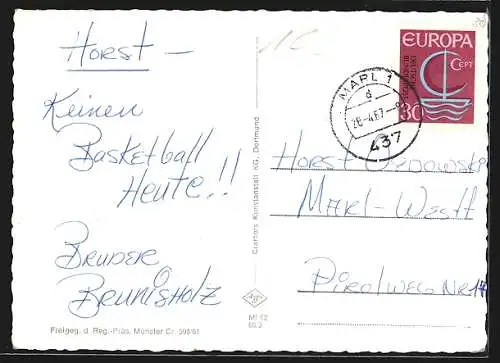 Horst —
Keinen
Basketball
Heute!!
Bruder
Brunisholz
Freigeg. d. Reg.-Präs. Münster Cr. 595/61
Cramers Kunstanstalt KG, Dortmund
MARL 1
d
28.-4.67-
437
EUROPA
CEPT
DEUTSCHE
BUNDESPOST
30
Horst
Marl-West
Pirolweg Nr 14